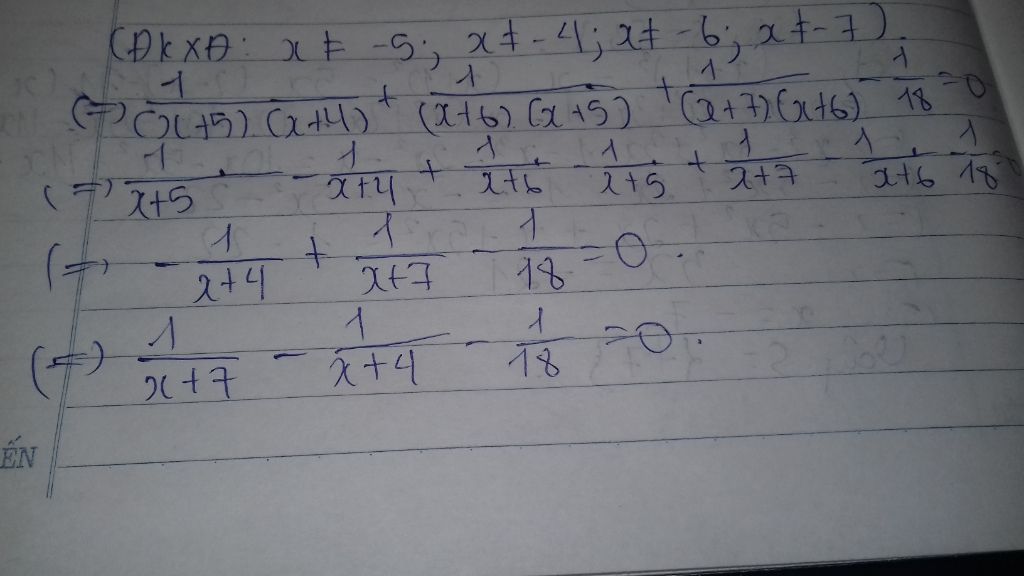 (ĐKXĐ: x ≠ -5; x ≠ -4; x ≠ -6; x ≠ -7).
(=) 1/((x+5).(x+4)) + 1/((x+6).(x+5)) + 1/((x+7)(x+6)) - 1/18 = 0
(=) 1/(x+5) - 1/(x+4) + 1/(x+6) - 1/(x+5) + 1/(x+7) - 1/(x+6) - 1/18 = 0
(=) - 1/(x+4) + 1/(x+7) - 1/18 = 0.
(=) 1/(x+7) - 1/(x+4) - 1/18 = 0.
ẾN